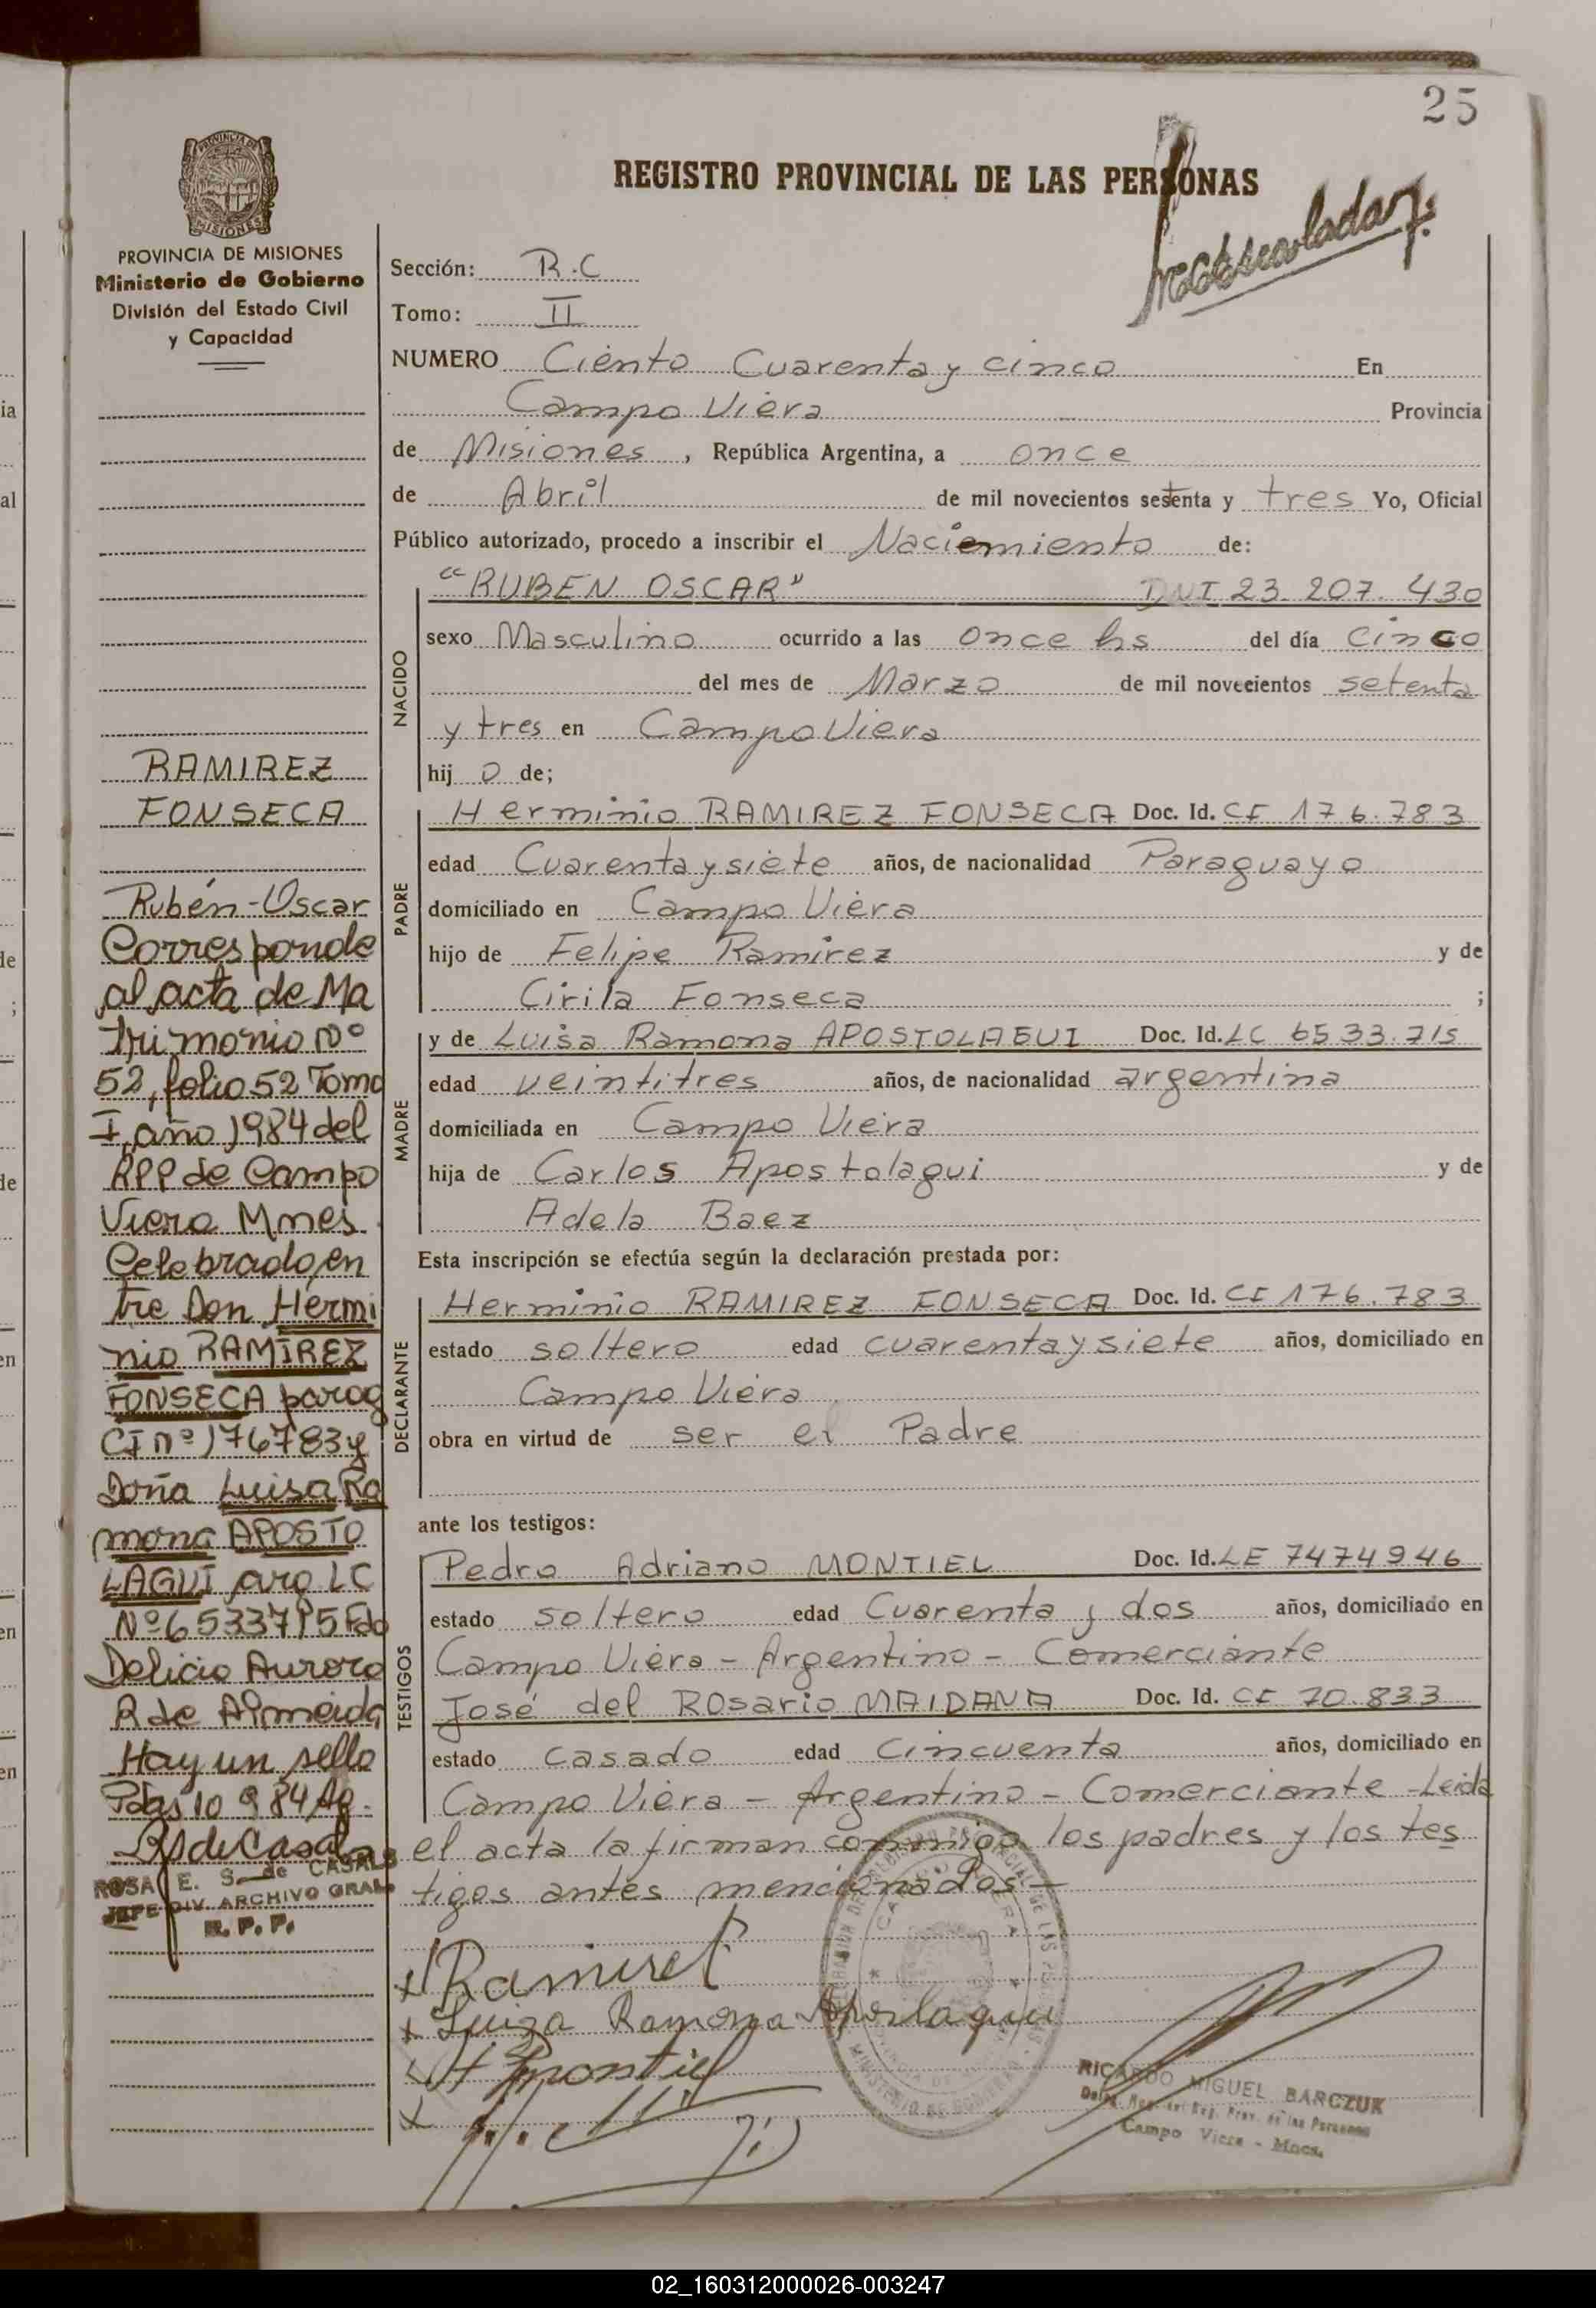 25
REGISTRO PROVINCIAL DE LAS PERSONAS
PROVINCIA DE MISIONES
Ministerio de Gobierno
División del Estado Civil
y Capacidad
RAMIREZ
FONSECA
Rubén-Oscar
Corresponde
al acta de Ma
trimonio Nº
52, folio 52 Tomo
I, año 1984 del
RPP de Campo
Viera Mnes.
Celebrado, en
tre Don Hermi
nio RAMÍREZ
FONSECA parag
CI nº 176783 y
Doña Luisa Ra
mona APOSTO
LAGUI arg LC
Nº 6533715 Fdo
Delicia Aurora
R de Almeida
Hay un sello
Pdas 10 9 84
ROSA E. S. de CASALS
JEFE DIV. ARCHIVO GRAL.
R. P. P.
Sección: R.C
Tomo: II
NUMERO Ciento Cuarenta y cinco En
Campo Viera Provincia
de Misiones, República Argentina, a once
de Abril de mil novecientos setenta y tres Yo, Oficial
Público autorizado, procedo a inscribir el Naciemiento de:
"RUBEN OSCAR" DNI 23.207.430
NACIDO
sexo Masculino ocurrido a las once hs del día Cinco
del mes de Marzo de mil novecientos setenta
y tres en Campo Viera
hijo de;
PADRE
Herminio RAMIREZ FONSECA Doc. Id. CI 176.783
edad Cuarenta y siete años, de nacionalidad Paraguayo
domiciliado en Campo Viera
hijo de Felipe Ramirez y de
Cirila Fonseca ;
MADRE
y de Luisa Ramona APOSTOLAGUI Doc. Id. LC 6533.715
edad veintitres años, de nacionalidad argentina
domiciliada en Campo Viera
hija de Carlos Apostolagui y de
Adela Baez
Esta inscripción se efectúa según la declaración prestada por:
DECLARANTE
Herminio RAMIREZ FONSECA Doc. Id. CI 176.783
estado soltero edad cuarenta y siete años, domiciliado en
Campo Viera
obra en virtud de ser el Padre
ante los testigos:
TESTIGOS
Pedro Adriano MONTIEL Doc. Id. LE 7474946
estado soltero edad Cuarenta y dos años, domiciliado en
Campo Viera - Argentino - Comerciante
José del Rosario MAIDANA Doc. Id. CI 70.833
estado casado edad Cincuenta años, domiciliado en
Campo Viera - Argentino - Comerciante - Leida
el acta la firman conmigo los padres y los tes
tigos antes mencionados -
Ramirez
Luiza Ramona
Montiel
RICARDO MIGUEL BARCZUK
Campo Viera - Mnes.
02_160312000026-003247